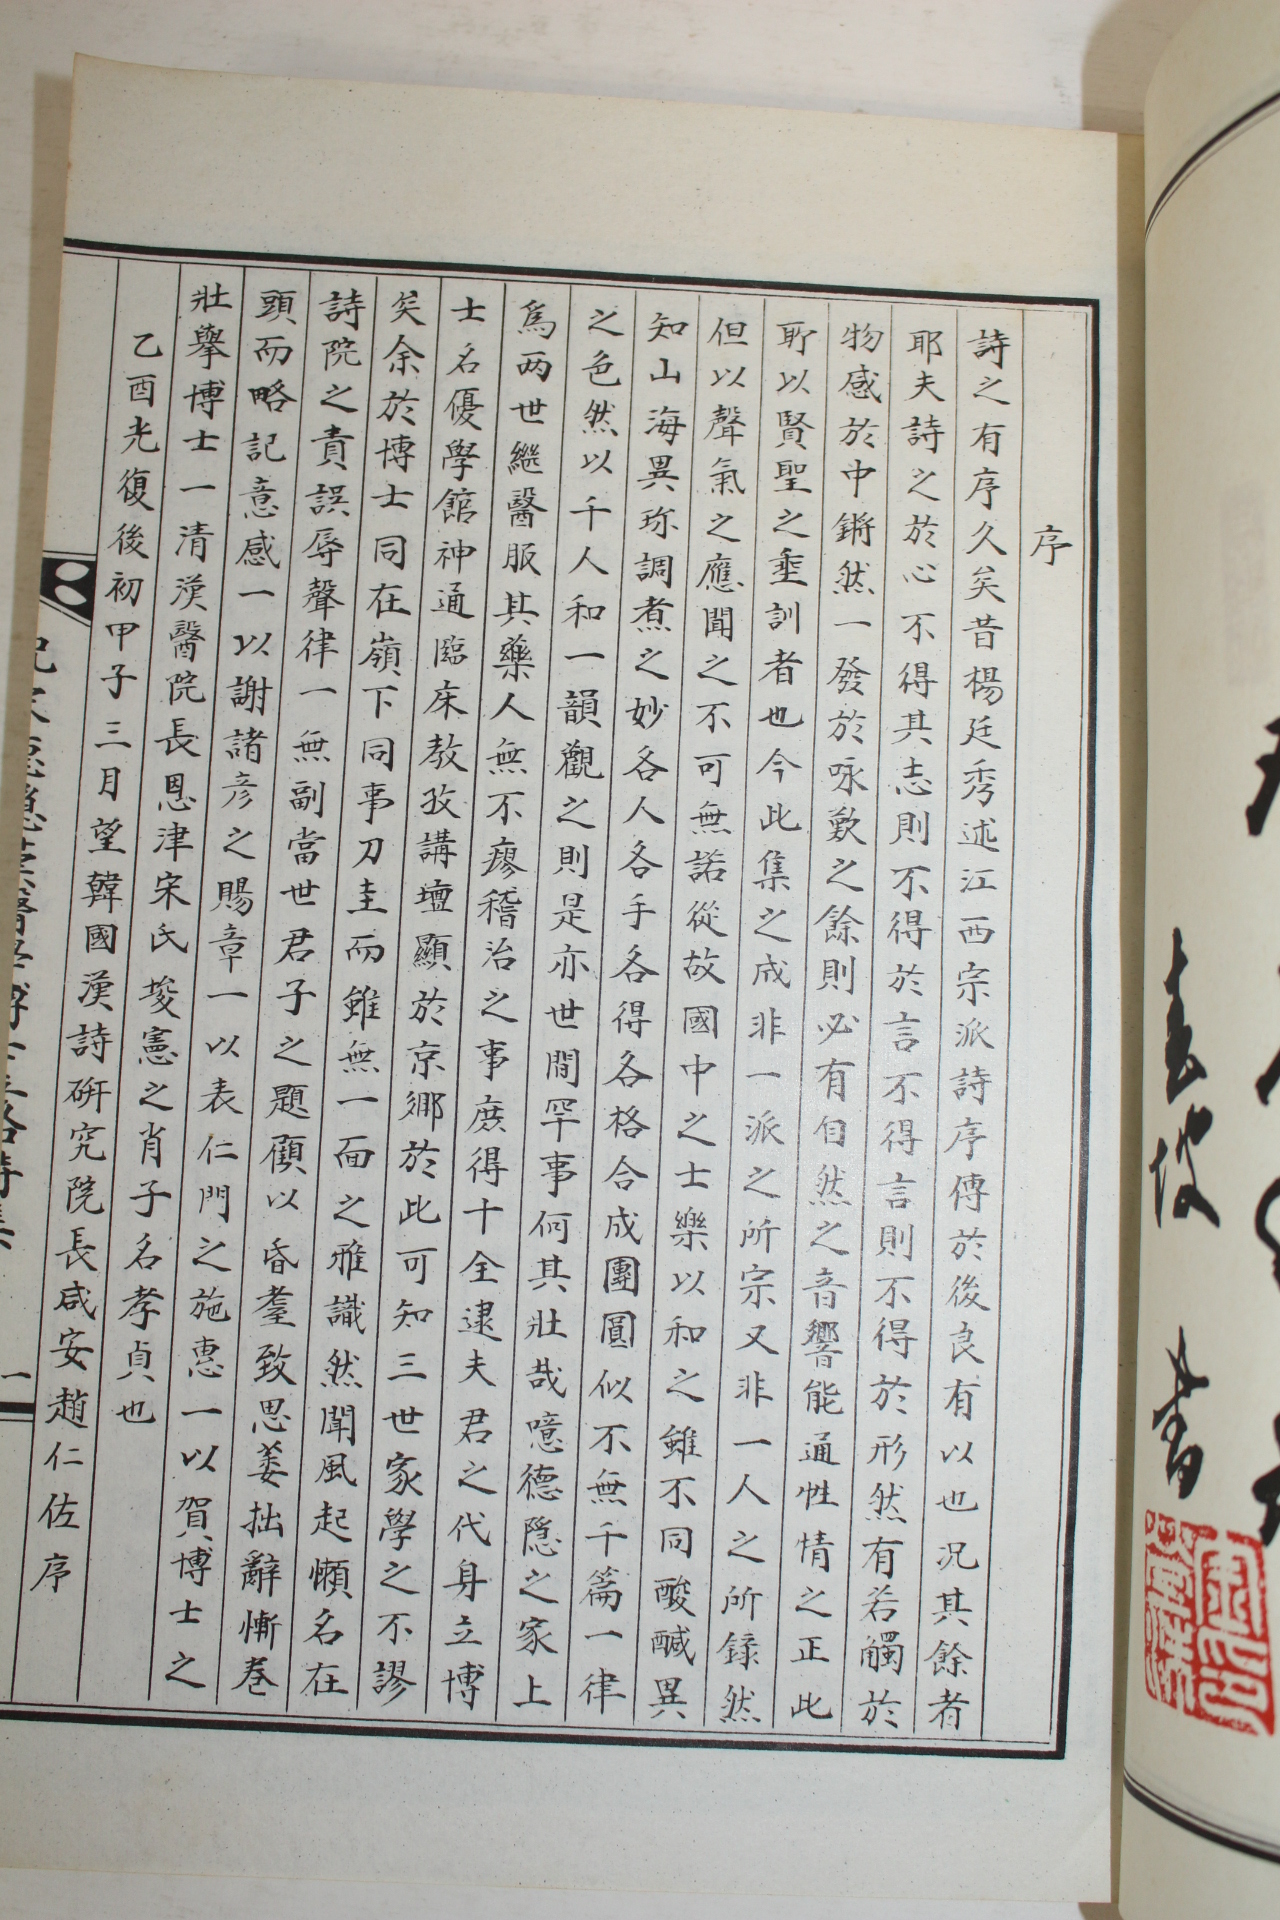 序
詩之有序久矣昔楊廷秀述江西宗派詩序傳於後良有以也况其餘者
耶夫詩之於心不得其志則不得於言不得言則不得於形然有若觸於
物感於中鏘然一發於咏歎之餘則必有自然之音響能通性情之正此
所以賢聖之垂訓者也今此集之成非一派之所宗又非一人之所録然
但以聲氣之應聞之不可無諾從故國中之士樂以和之雖不同酸醎異
知山海異珎調煮之妙各人各手各得各格合成團圓似不無千篇一律
之色然以千人和一韻觀之則是亦世間罕事何其壯哉噫德隱之家上
爲两世繼醫服其藥人無不瘳稽治之事庶得十全逮夫君之代身立博
士名優學館神通臨床教孜講壇顯於京鄉於此可知三世家學之不謬
矣余於博士同在嶺下同事刀圭而雖無一面之雅識然聞風起懶名在
詩院之責誤辱聲律一無副當世君子之題顧以昏耋致思萎拙辭慚卷
頭而略記意感一以謝諸彦之賜章一以表仁門之施惠一以賀博士之
壯擧博士一清漢醫院長恩津宋氏埈憲之肖子名孝貞也
乙酉光復後初甲子三月望韓國漢詩硏究院長咸安趙仁佐序
一
書